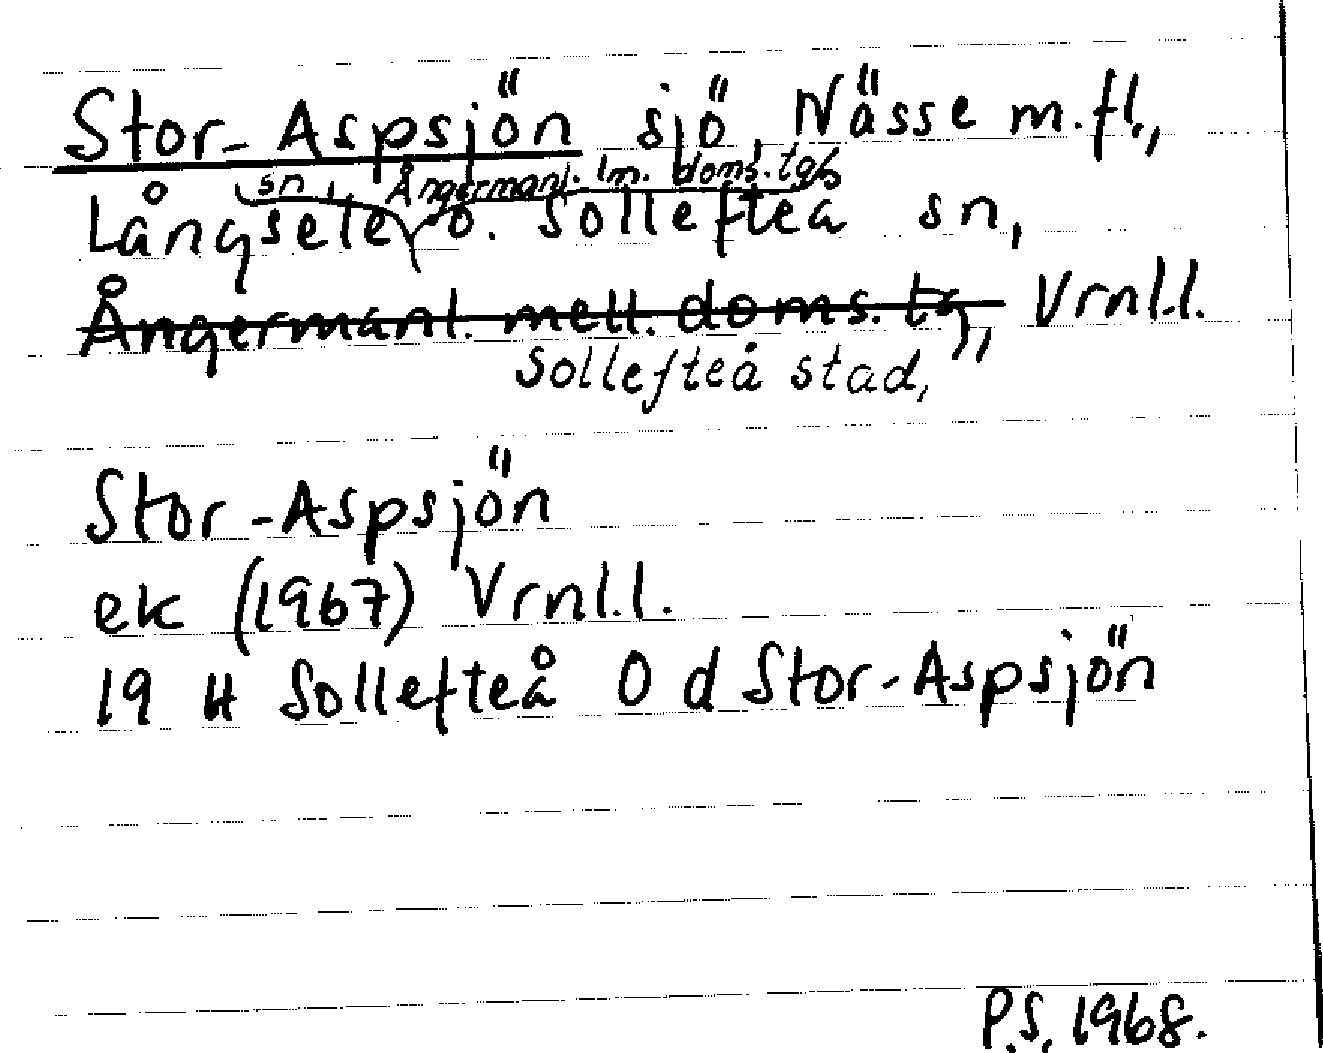 Stor-Aspsjön sjö, Nässe m.fl.,
sn, Ångermanl. m. doms. tgs
Långsele o. Sollefteå sn,
Ångermanl. mell. doms. tg, Vrnl.l.
Sollefteå stad,
Stor-Aspsjön
ek (1967) Vrnl.l.
19 H Sollefteå O d Stor-Aspsjön
P.S. 1968.